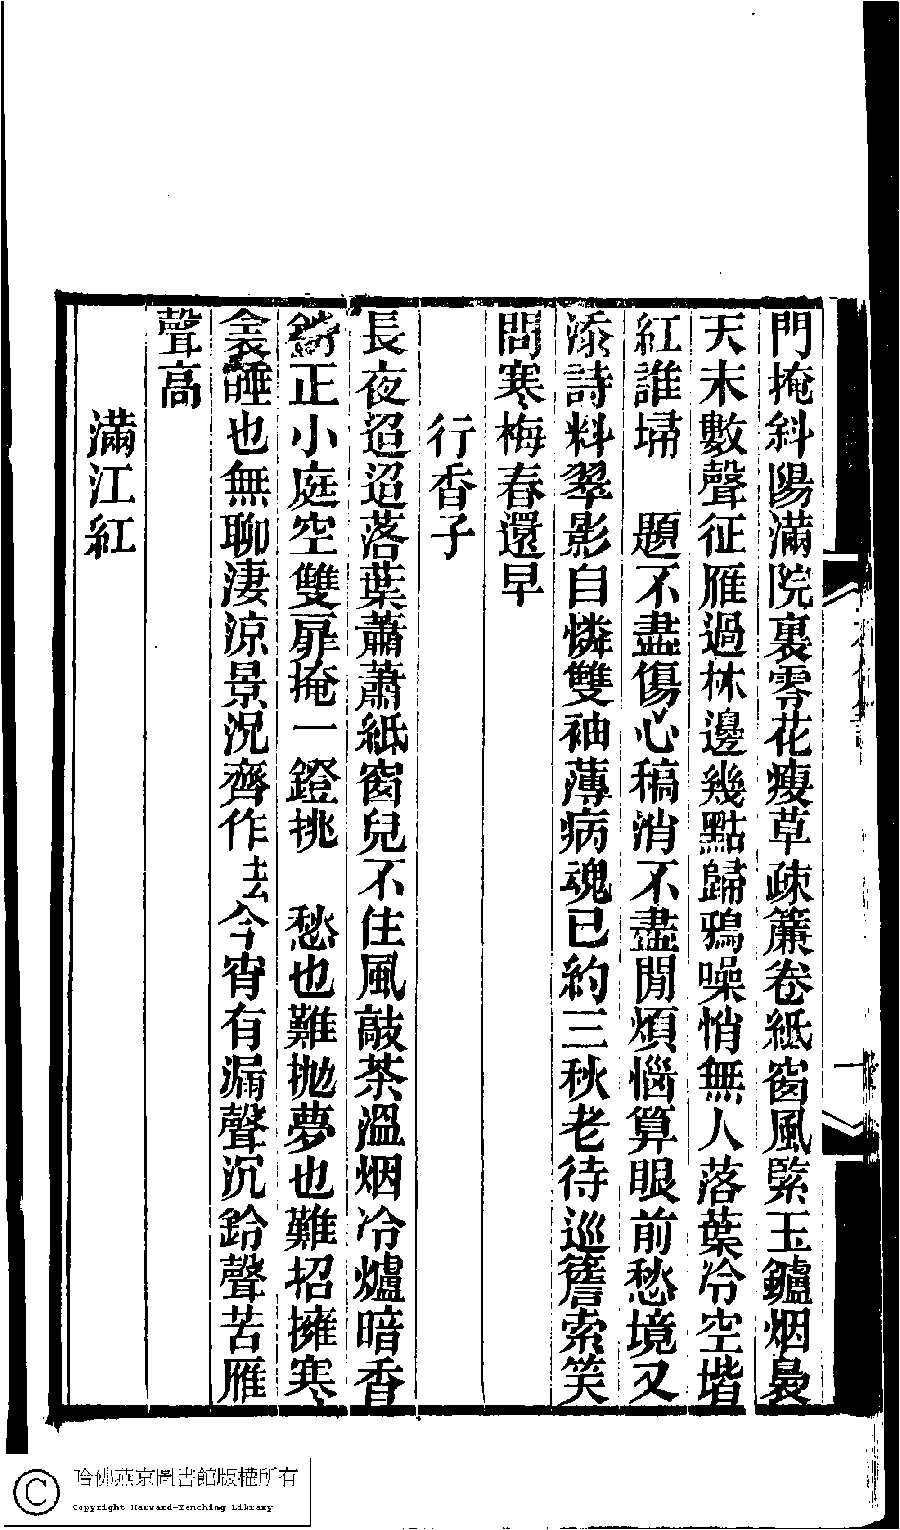 門掩斜陽滿院裏零花瘦草疎簾卷紙窗風緊玉鑪烟裊
天末數聲征雁過林邊幾點歸鴉噪悄無人落葉冷空堦
紅誰埽　題不盡傷心稿消不盡閒煩惱算眼前愁境又
添詩料翠影自憐雙袖薄病魂已約三秋老待巡簷索笑
問寒梅春還早
行香子
長夜迢迢落葉蕭蕭紙窗兒不住風敲茶溫烟冷爐暗香
銷正小庭空雙扉掩一鐙挑　愁也難拋夢也難招擁寒
衾睡也無聊淒涼景況齊作去今宵有漏聲沉鈴聲苦雁
聲高
滿江紅
哈佛燕京圖書館版權所有
Copyright Harvard-Yenching Library